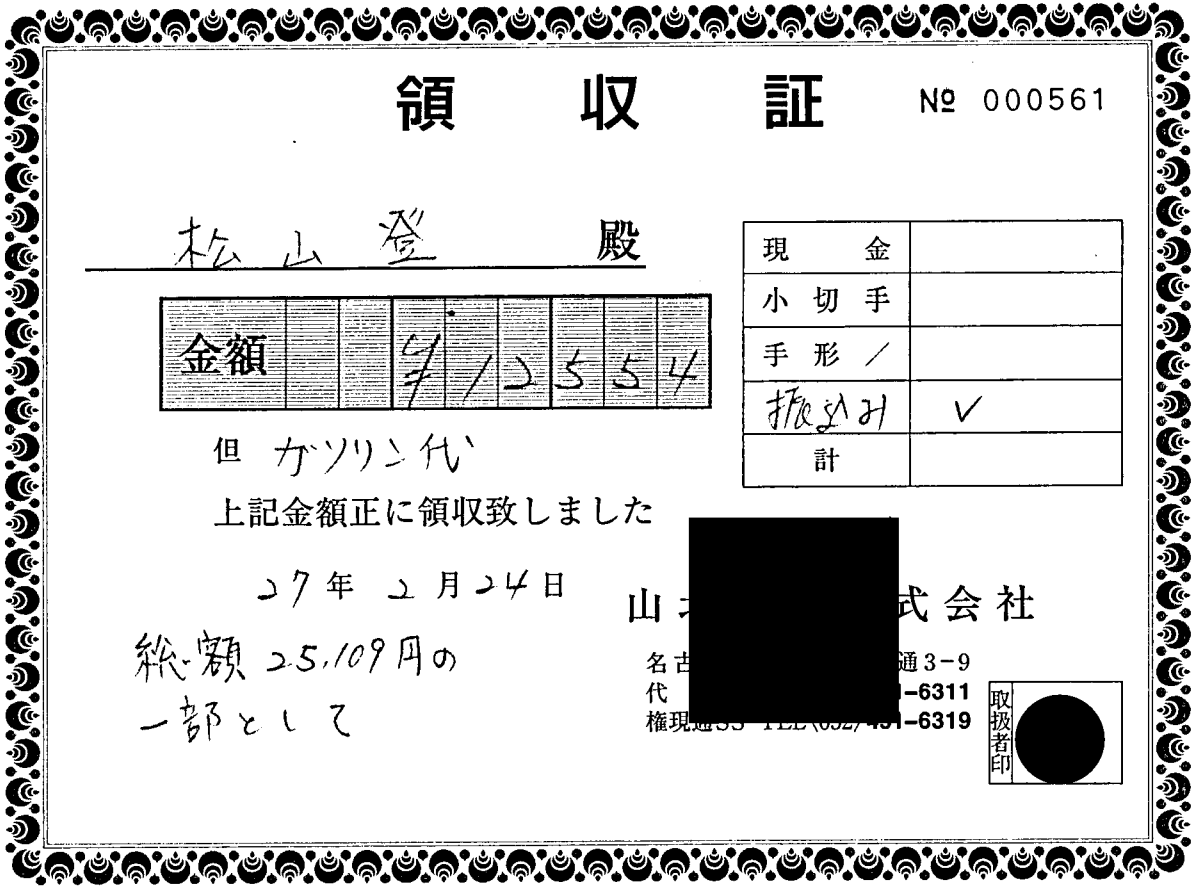 領収証 № 000561
松山登 殿
現金
小切手
手形 /
振込み ✓
計
金額 ¥12554
但 ガソリン代
上記金額正に領収致しました
27年2月24日
総額25,109円の
一部として
山 式会社
名古 通3-9
代 1-6311
権現通SS TEL(052)431-6319
取扱者印